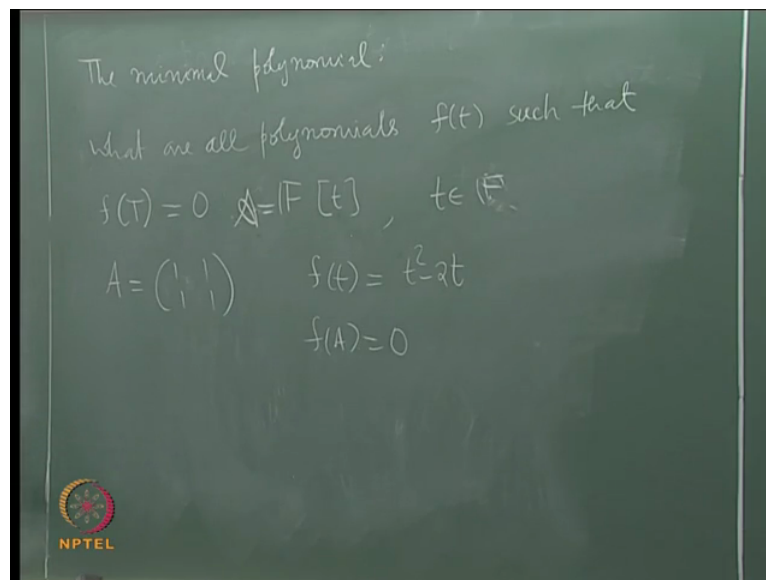 The minimal polynomial:
what are all polynomials f(t) such that
f(T) = 0 𝔸=𝔽[t], t∈ 𝔽
A = (1 1
1 1) f(t) = t²-2t
f(A) = 0
NPTEL